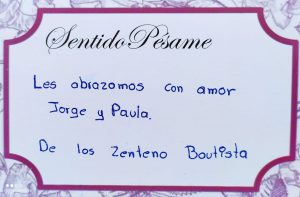 Sentido Pésame
Les abrazamos con amor
Jorge y Paula.
De los Zenteno Bautista